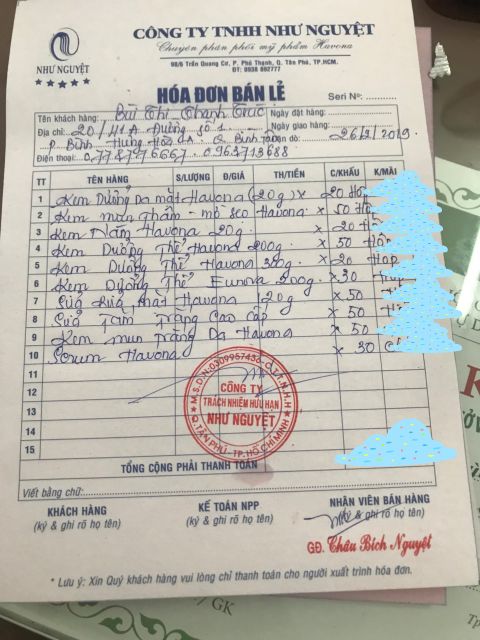 NHƯ NGUYỆT
CÔNG TY TNHH NHƯ NGUYỆT
Chuyên phân phối mỹ phẩm Havona
98/6 Trần Quang Cơ, P. Phú Thạnh, Q. Tân Phú, TP.HCM.
ĐT: 0938 692777
HÓA ĐƠN BÁN LẺ
Seri Nº:
Tên khách hàng: Bùi Thị Thanh Trúc
Ngày đặt hàng:
Địa chỉ: 20/41A Đường số 1
Ngày giao hàng:
P. Bình Hưng Hòa A. Q Bình Tân
26/2/2019
Điện thoại: 0778776667 - 0963713688
TT TÊN HÀNG S/LƯỢNG Đ/GIÁ TH/TIỀN C/KHẤU K/MÃI
1 Kem Dưỡng Da mặt Havona (20g) x 20 Hộp
2 Kem mụn Thâm - mờ sẹo Havona x 50 Hộp
3 Kem Nám Havona 20g x 20 Hộp
4 Kem Dưỡng Thể Havona 200g x 50 Hộp
5 Kem Dưỡng Thể Havona x 20 Hộp
6 Kem Dưỡng Thể 200g x 30 Hộp
7 Sữa Rửa mặt Havona 120g x 50
8 Sữa Tắm Trắng Cao Cấp x 50
9 Kem mụn Trắng Da Havona x 50
10 Serum Havona x 30
11
12
13
14
15
M.S.D.N:0309967436-C.T.T.N.H.H
CÔNG TY
TRÁCH NHIỆM HỮU HẠN
NHƯ NGUYỆT
Q.TÂN PHÚ - TP.HỒ CHÍ MINH
TỔNG CỘNG PHẢI THANH TOÁN
Viết bằng chữ:
KHÁCH HÀNG KẾ TOÁN NPP NHÂN VIÊN BÁN HÀNG
(ký & ghi rõ họ tên) (ký & ghi rõ họ tên) (ký & ghi rõ họ tên)
GĐ. Châu Bích Nguyệt
* Lưu ý: Xin Quý khách hàng vui lòng chỉ thanh toán cho người xuất trình hóa đơn.
/ GK